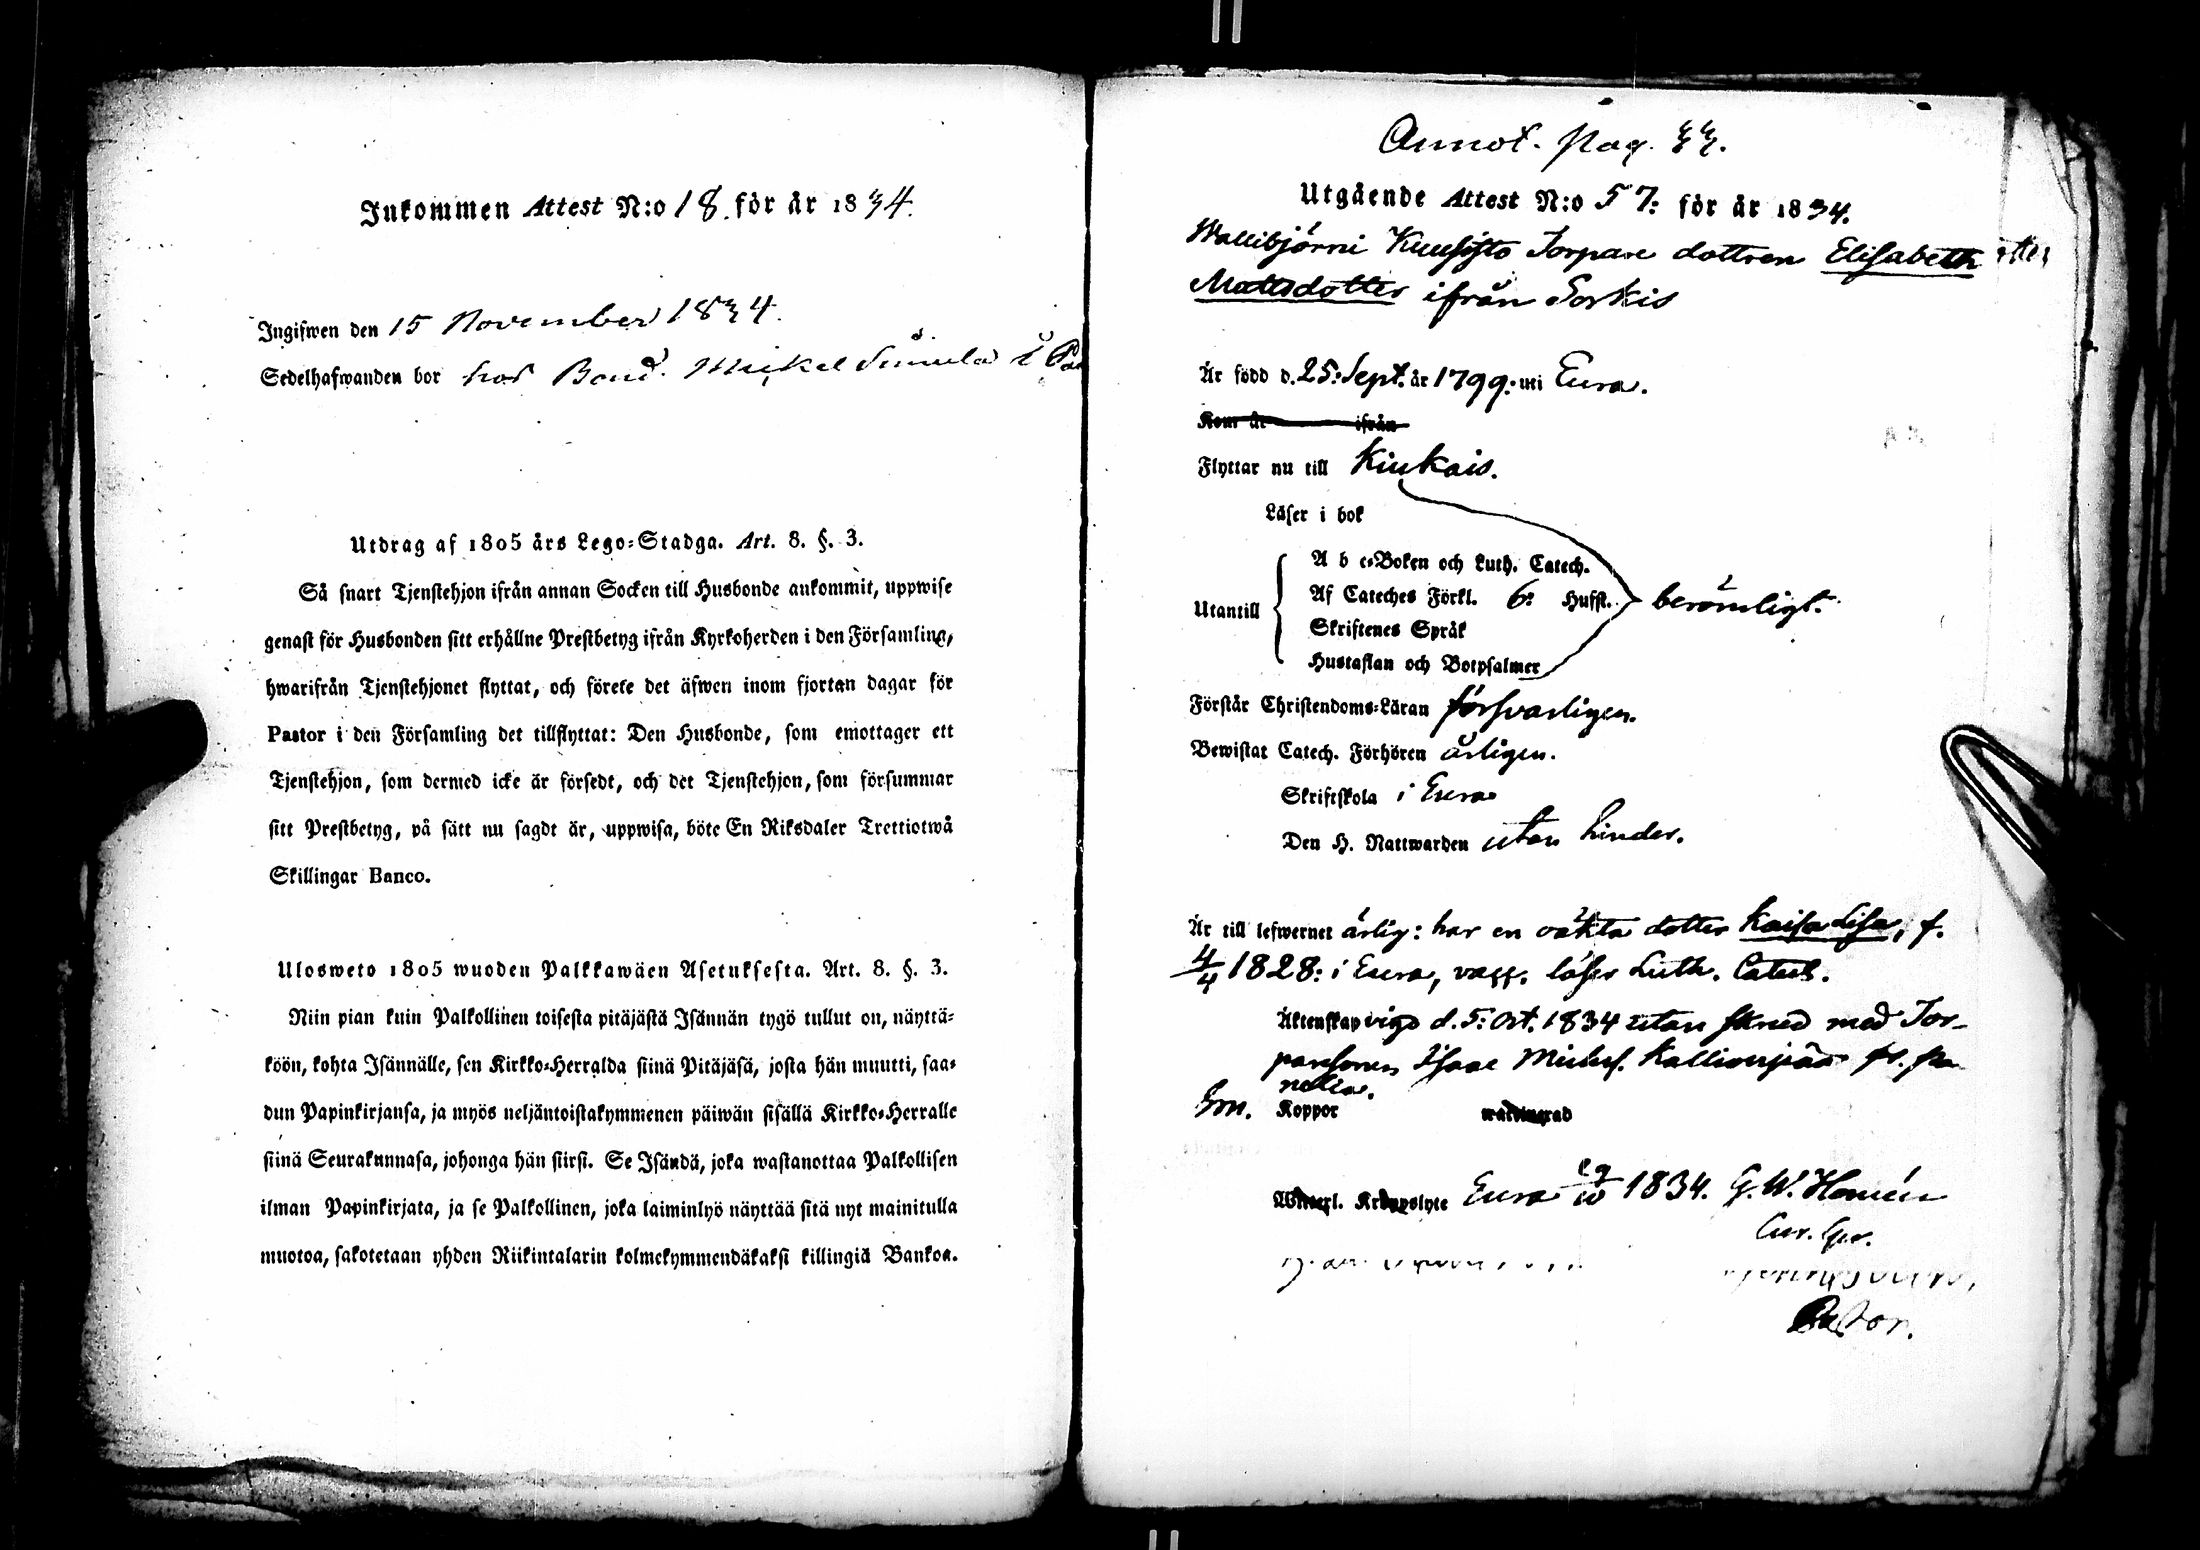 Inkommen Attest N:o 18. för år 1834.
Ingifwen den 15 November 1834.
Sedelhafwanden bor hos Bond. Mickel Simula i
Utdrag af 1805 års Lego-Stadga. Art. 8. §. 3.
Så snart Tjenstehjon ifrån annan Socken till Husbonde ankommit, uppwise
genast för Husbonden sitt erhållne Prestbetyg ifrån Kyrkoherden i den Församling,
hwarifrån Tjenstehjonet flyttat, och förete det äfwen inom fjortan dagar för
Pastor i den Församling det tillflyttat: Den Husbonde, som emottager ett
Tjenstehjon, som dermed icke är försedt, och det Tjenstehjon, som försummar
sitt Prestbetyg, på sätt nu sagdt är, uppwisa, böte En Riksdaler Trettiotwå
Skillingar Banco.
Ulosweto 1805 wuoden Palkkawäen Asetuksesta. Art. 8. §. 3.
Niin pian kuin Palkollinen toisesta pitäjästä Isännän tygö tullut on, näyttä-
köön, kohta Isännälle, sen Kirkko-Herralda siinä Pitäjäsä, josta hän muutti, saa-
dun Papinkirjansa, ja myös neljäntoistakymmenen päiwän sisällä Kirkko-Herralle
siinä Seurakunnasa, johonga hän siirsi. Se Isändä, joka wastanottaa Palkollisen
ilman Papinkirjata, ja se Palkollinen, joka laiminlyö näyttää sitä nyt mainitulla
muotoa, sakotetaan yhden Riikintalarin kolmekymmendäkaksi killingiä Bankoa.
Annot. pag. 33.
Utgående Attest N:o 57: för år 1834.
Wallibjörni Kuusisto Torpare dottren Elisabeth
Mattsdotter ifrån Sorkis
Är född d. 25: Sept. år 1799: uti Eura.
Kom år ifrån
Flyttar nu till Kiukais.
Läser i bok
A b c-Boken och Luth. Catech.
Utantill Af Cateches Förkl. 6: Hufst. berömligt.
Skriftenes Språk
Hustaflan och Botpsalmer
Förstår Christendoms-Läran försvarligen.
Bewistat Catech. Förhören årligen.
Skriftskola i Eura
Den H. Nattwarden utan hinder.
Är till lefwernet ärlig: har en oäkta dotter Kaisa Lisa, f.
4/4 1828: i Eura, vacc. läser Luth. Catech.
Äktenskap vigd d. 5: Oct. 1834 utan med Tor-
paresonen Isaac Michels. Kallionpää fr. Pa
nelia.
Koppor
Eura 1834. G. W. Homén
Pastor.